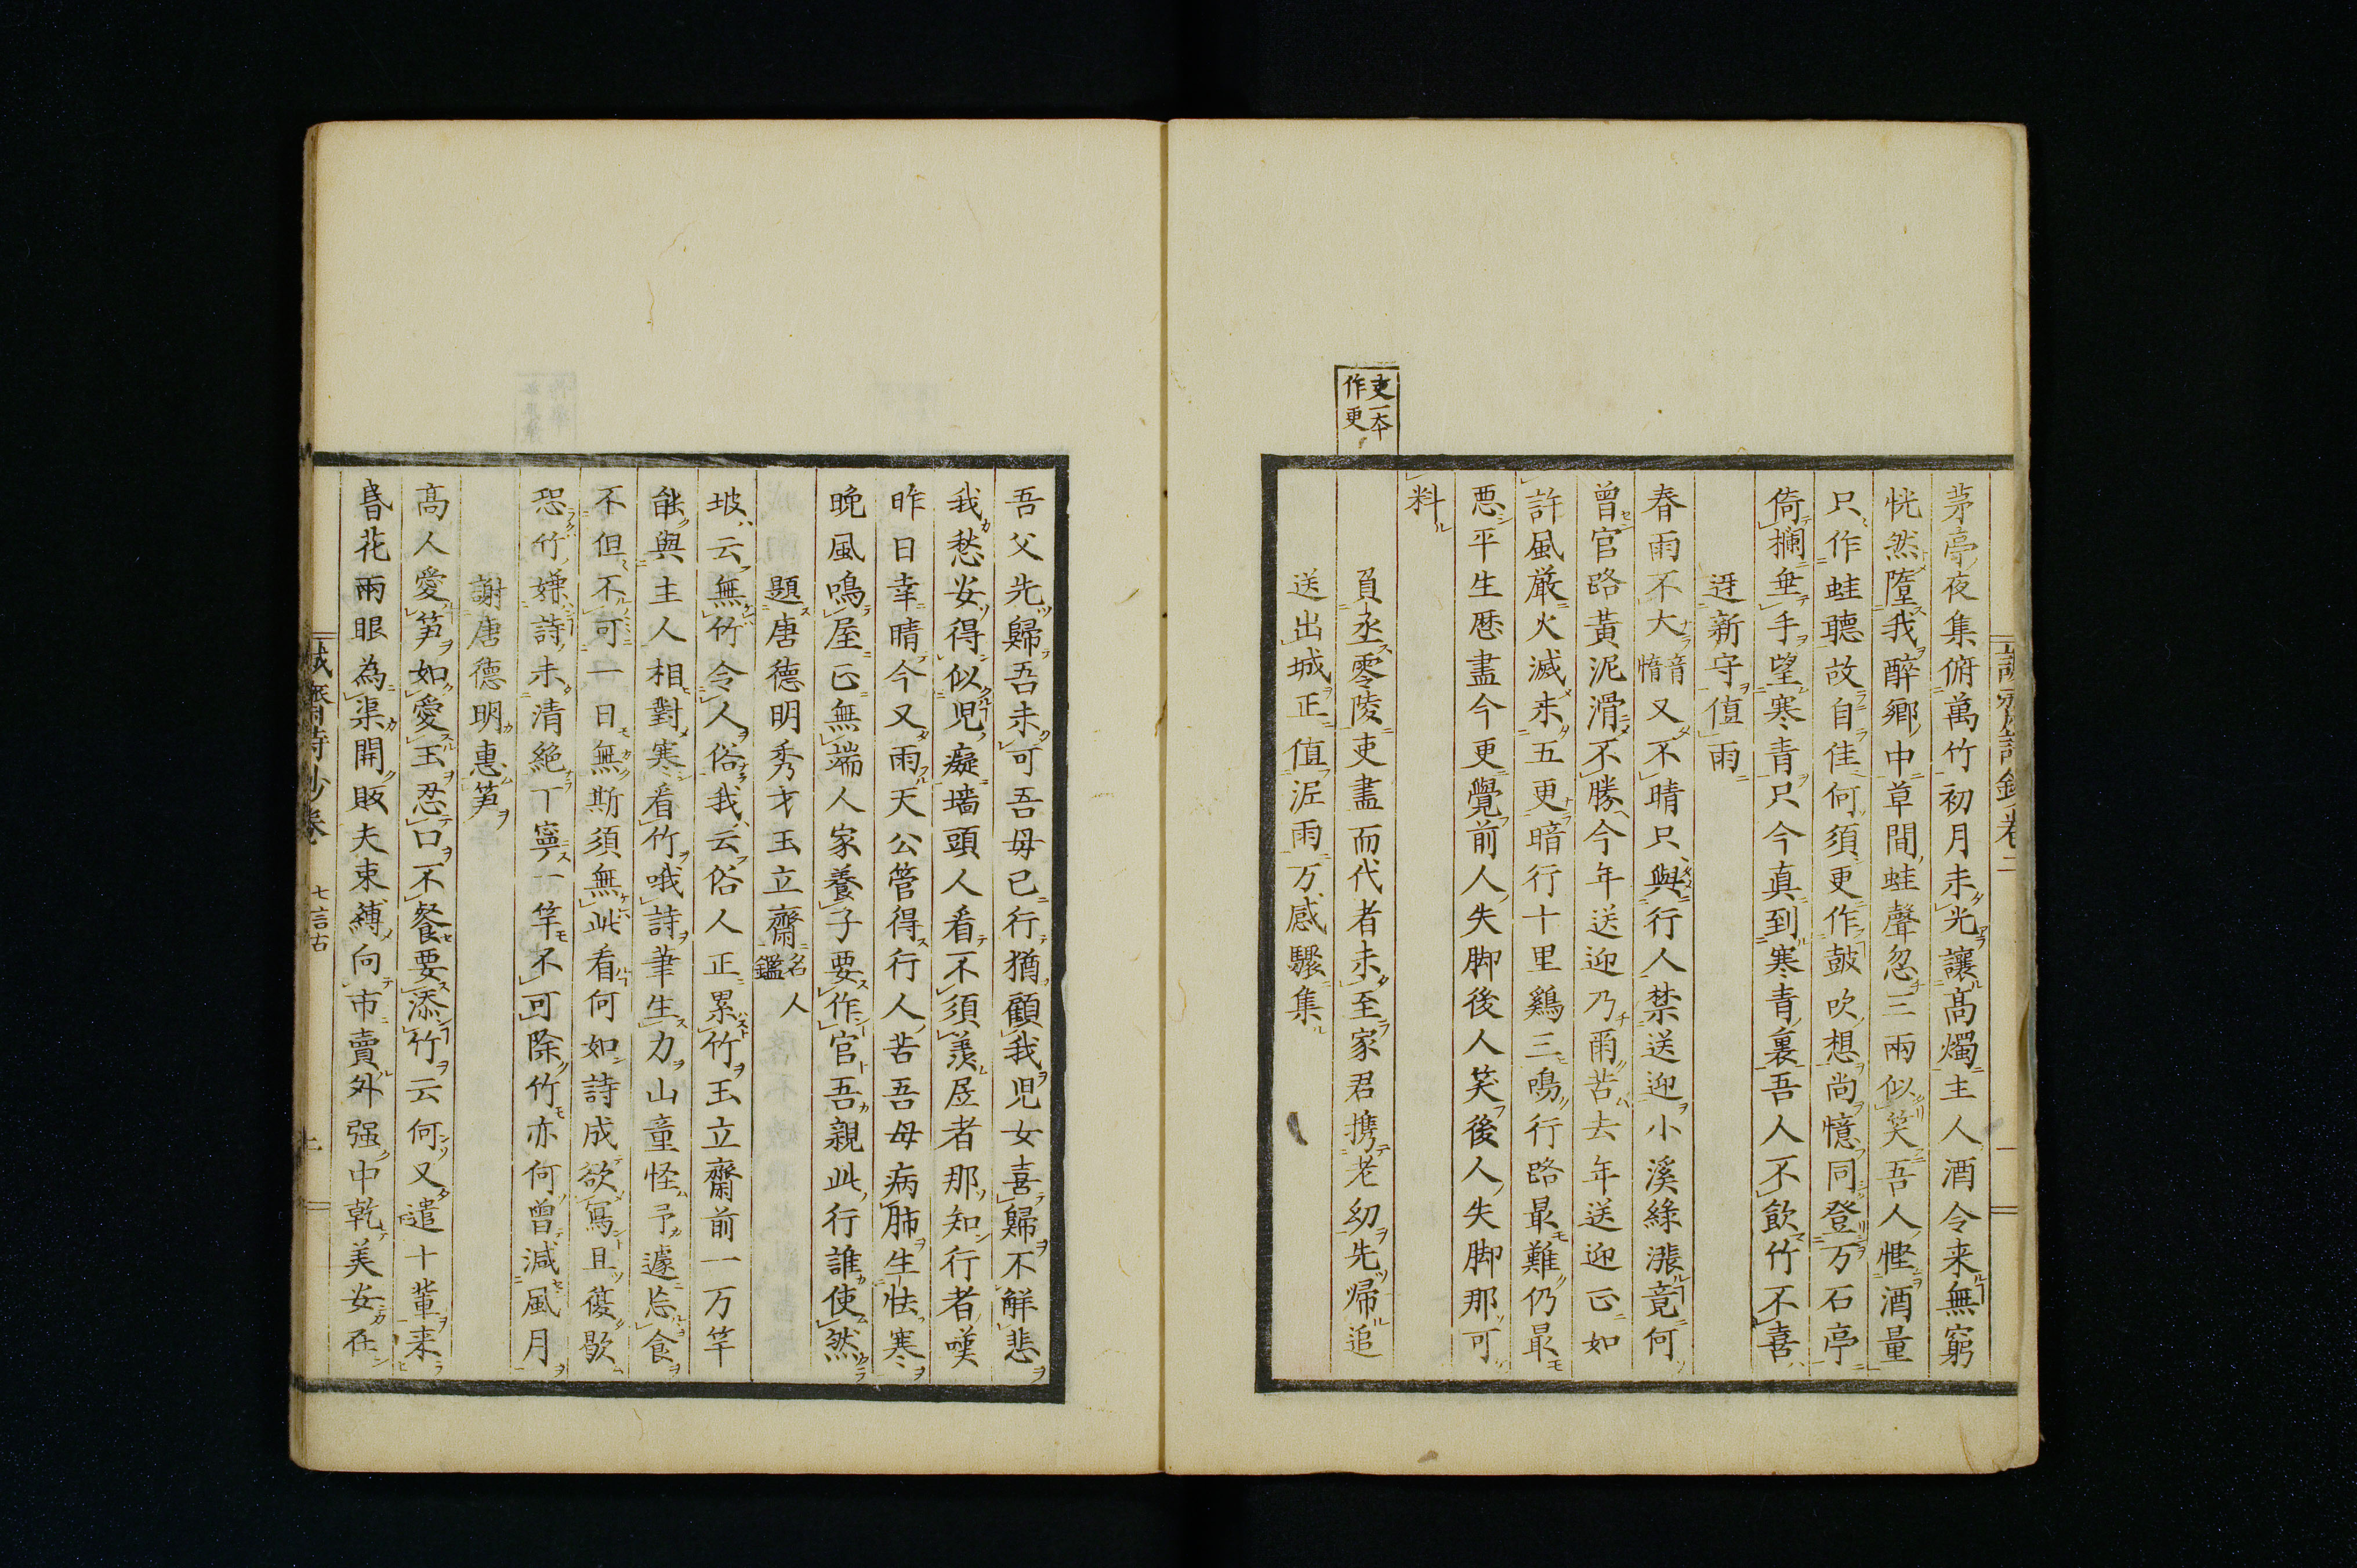 茅亭夜集俯萬竹初月未光讓高燭主人酒令来無窮
恍然墮我醉鄉中草間蛙聲忽三兩似笑吾人慳酒量
只作蛙聽故自佳何須更作鼓吹想尚憶同登万石亭
倚欄垂手望寒青只今真到寒青裏吾人不飲竹不喜
迓新守值雨
春雨不大音惰又不晴只與行人禁送迎小溪綠漲竟何
曾官路黃泥滑不勝今年送迎乃爾苦去年送迎正如
許風厳火滅未五更暗行十里鷄三鳴行路最難仍最
惡平生歷盡今更覺前人失脚後人笑後人失脚那可
料
吏一本作更
負丞零陵吏盡而代者未至家君携老幼先帰追
送出城正值泥雨万感驟集
吾父先歸吾未可吾母已行猶顧我兒女喜歸不解悲
我愁安得似児癡墻頭人看不須羨居者那知行者嘆
昨日幸晴今又雨天公管得行人苦吾母病肺生怯寒
晚風鳴屋正無端人家養子要作官吾親此行誰使然
題唐德明秀才玉立齋名人鑑
坡云無竹令人俗我云俗人正累竹玉立齋前一万竿
能與主人相對寒看竹哦詩筆生力山童怪予遽忘食
不但不可一日無斯須無此看何如詩成欲寫且復歇
恐竹嫌詩未清絕丁寧一竿不可除竹亦何曾減風月
謝唐德明惠笋
高人愛笋如愛玉忍口不餐要添竹云何又遣十輩来
昏花兩眼為渠開販夫束縛向市賣外强中乾美安在
誠齋詩鈔卷
七言古